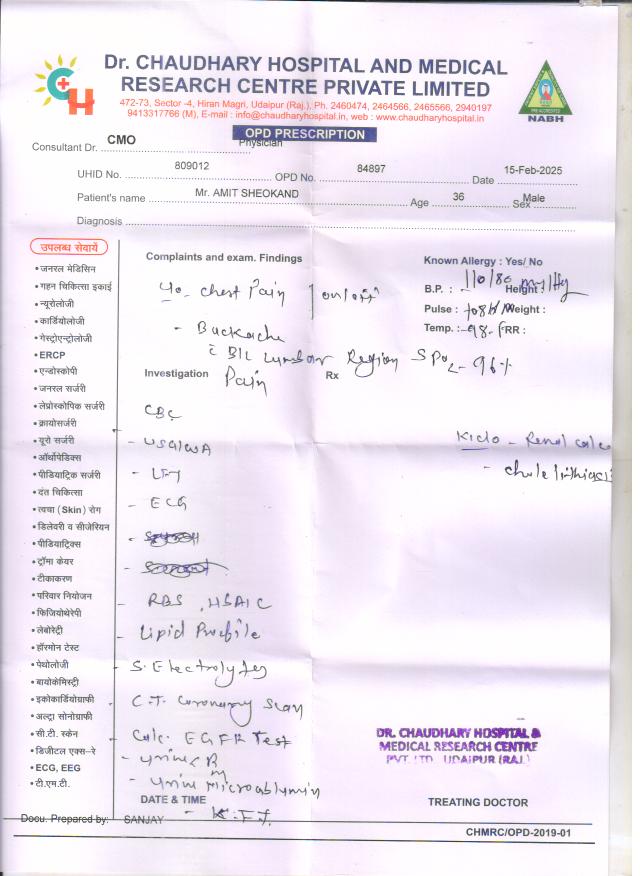 Dr. CHAUDHARY HOSPITAL AND MEDICAL
RESEARCH CENTRE PRIVATE LIMITED
472-73, Sector -4, Hiran Magri, Udaipur (Raj.), Ph. 2460474, 2464566, 2465566, 2940197
9413317766 (M), E-mail : info@chaudharyhospital.in, web : www.chaudharyhospital.in
CH
NABH
OPD PRESCRIPTION
Consultant Dr. CMO Physician
UHID No. 809012 OPD No. 84897 Date 15-Feb-2025
Patient's name Mr. AMIT SHEOKAND Age 36 Sex Male
Diagnosis
उपलब्ध सेवायें
• जनरल मेडिसिन
• गहन चिकित्सा इकाई
• न्यूरोलोजी
• कार्डियोलोजी
• गेस्ट्रोएन्ट्रोलोजी
• ERCP
• एन्डोस्कोपी
• जनरल सर्जरी
• लेप्रोस्कोपिक सर्जरी
• क्रायोसर्जरी
• यूरो सर्जरी
• ऑर्थोपेडिक्स
• पीडियाट्रिक सर्जरी
• दंत चिकित्सा
• त्वचा (Skin) रोग
• डिलेवरी व सीजेरियन
• पीडियाट्रिक्स
• ट्रॉमा केयर
• टीकाकरण
• परिवार नियोजन
• फिजियोथेरेपी
• लेबोरेट्री
• हॉरमोन टेस्ट
• पेथोलोजी
• बायोकेमिस्ट्री
• इकोकार्डियोग्राफी
• अल्ट्रा सोनोग्राफी
• सी.टी. स्केन
• डिजीटल एक्स-रे
• ECG, EEG
• टी.एम.टी.
Complaints and exam. Findings
Known Allergy : Yes/ No
B.P. : 110/80 mm/Hg Height :
Pulse : 108 Weight :
Temp. : 98. F RR :
SPO2 - 96%
chest Pain on/off
- Backache
c B/L Lumbar Region
Pain
Investigation
Rx
CBC
- USG/WA
- LFT
- ECG
- RBS, HBA1C
- Lipid Profile
- S. Electrolytes
- C.T. Coronary Scan
- Calc. EGFR Test
- Urine C R
- Urine Microalbumin
- K.F.T.
K/c/o - Renal calc
- cholelithiasi
DR. CHAUDHARY HOSPITAL &
MEDICAL RESEARCH CENTRE
PVT. LTD. UDAIPUR (RAJ.)
DATE & TIME
TREATING DOCTOR
Docu. Prepared by: SANJAY
CHMRC/OPD-2019-01